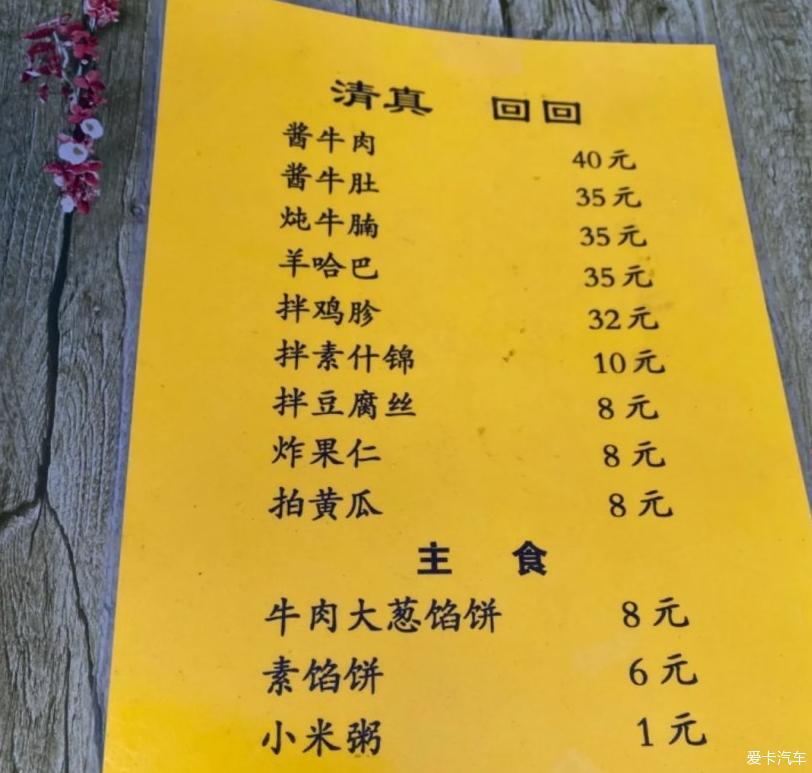 清真 回回
酱牛肉 40元
酱牛肚 35元
炖牛腩 35元
羊哈巴 35元
拌鸡胗 32元
拌素什锦 10元
拌豆腐丝 8元
炸果仁 8元
拍黄瓜 8元
主食
牛肉大葱馅饼 8元
素馅饼 6元
小米粥 1元
爱卡汽车